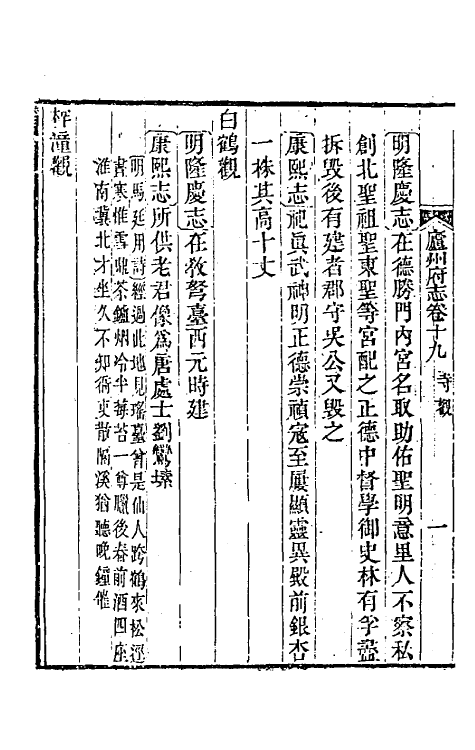 廬州府志卷十九 寺觀 一
明隆慶志在德勝門內宮名取助佑聖明意里人不察私
創北聖祖聖東聖等宮配之正德中督學御史林有孚盡
拆毀後有建者郡守吳公又毀之
康熙志祀真武神明正德崇禎寇至屢顯靈異殿前銀杏
一株其高十丈
白鶴觀
明隆慶志在敎弩臺西元時建
康熙志所供老君像爲唐處士劉鸞塐
明馬廷用詩經過此地見瑤臺曾是仙人跨鶴來松逕
書寒惟雪點茶鑪烟冷半莓苔一尊臘後春前酒四座
淮南冀北才坐久不知衙吏散隔溪猶聽晚鐘催
梓潼觀